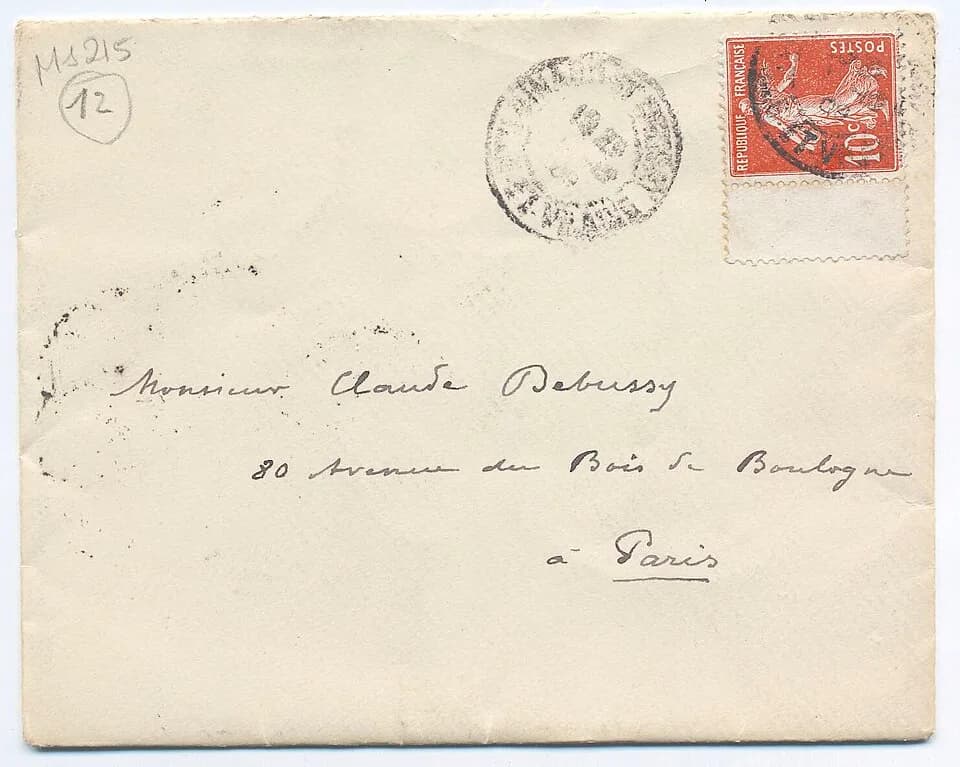 MS 215
12
RÉPUBLIQUE FRANÇAISE
POSTES
10c
Monsieur Claude Debussy
80 Avenue du Bois de Boulogne
à Paris